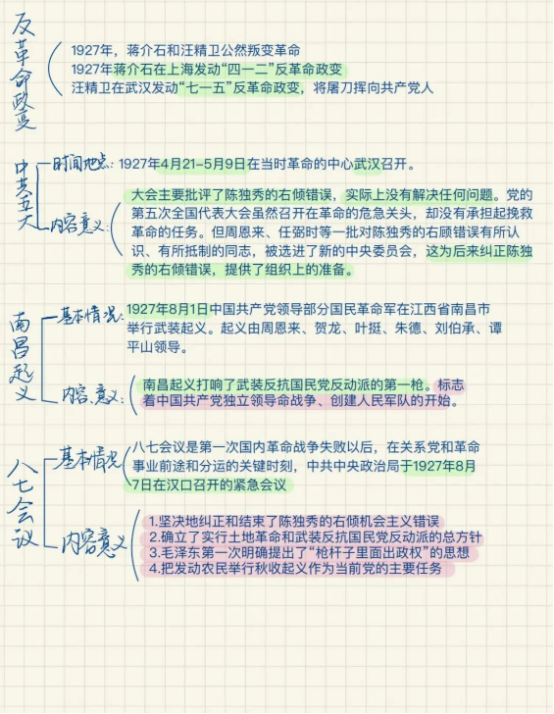 反革命政变
1927年，蒋介石和汪精卫公然叛变革命
1927年蒋介石在上海发动“四一二”反革命政变
汪精卫在武汉发动“七一五”反革命政变，将屠刀挥向共产党人
中共五大
时间地点：1927年4月21-5月9日在当时革命的中心武汉召开。
内容意义：
大会主要批评了陈独秀的右倾错误，实际上没有解决任何问题。党的
第五次全国代表大会虽然召开在革命的危急关头，却没有承担起挽救
革命的任务。但周恩来、任弼时等一批对陈独秀的右顾错误有所认
识、有所抵制的同志，被选进了新的中央委员会，这为后来纠正陈独
秀的右倾错误，提供了组织上的准备。
南昌起义
基本情况：1927年8月1日中国共产党领导部分国民革命军在江西省南昌市
举行武装起义。起义由周恩来、贺龙、叶挺、朱德、刘伯承、谭
平山领导。
内容、意义：
南昌起义打响了武装反抗国民党反动派的第一枪。标志
着中国共产党独立领导命战争、创建人民军队的开始。
八七会议
基本情况
八七会议是第一次国内革命战争失败以后，在关系党和革命
事业前途和分运的关键时刻，中共中央政治局于1927年8月
7日在汉口召开的紧急会议
内容意义
1.坚决地纠正和结束了陈独秀的右倾机会主义错误
2.确立了实行土地革命和武装反抗国民党反动派的总方针
3.毛泽东第一次明确提出了“枪杆子里面出政权”的思想
4.把发动农民举行秋收起义作为当前党的主要任务